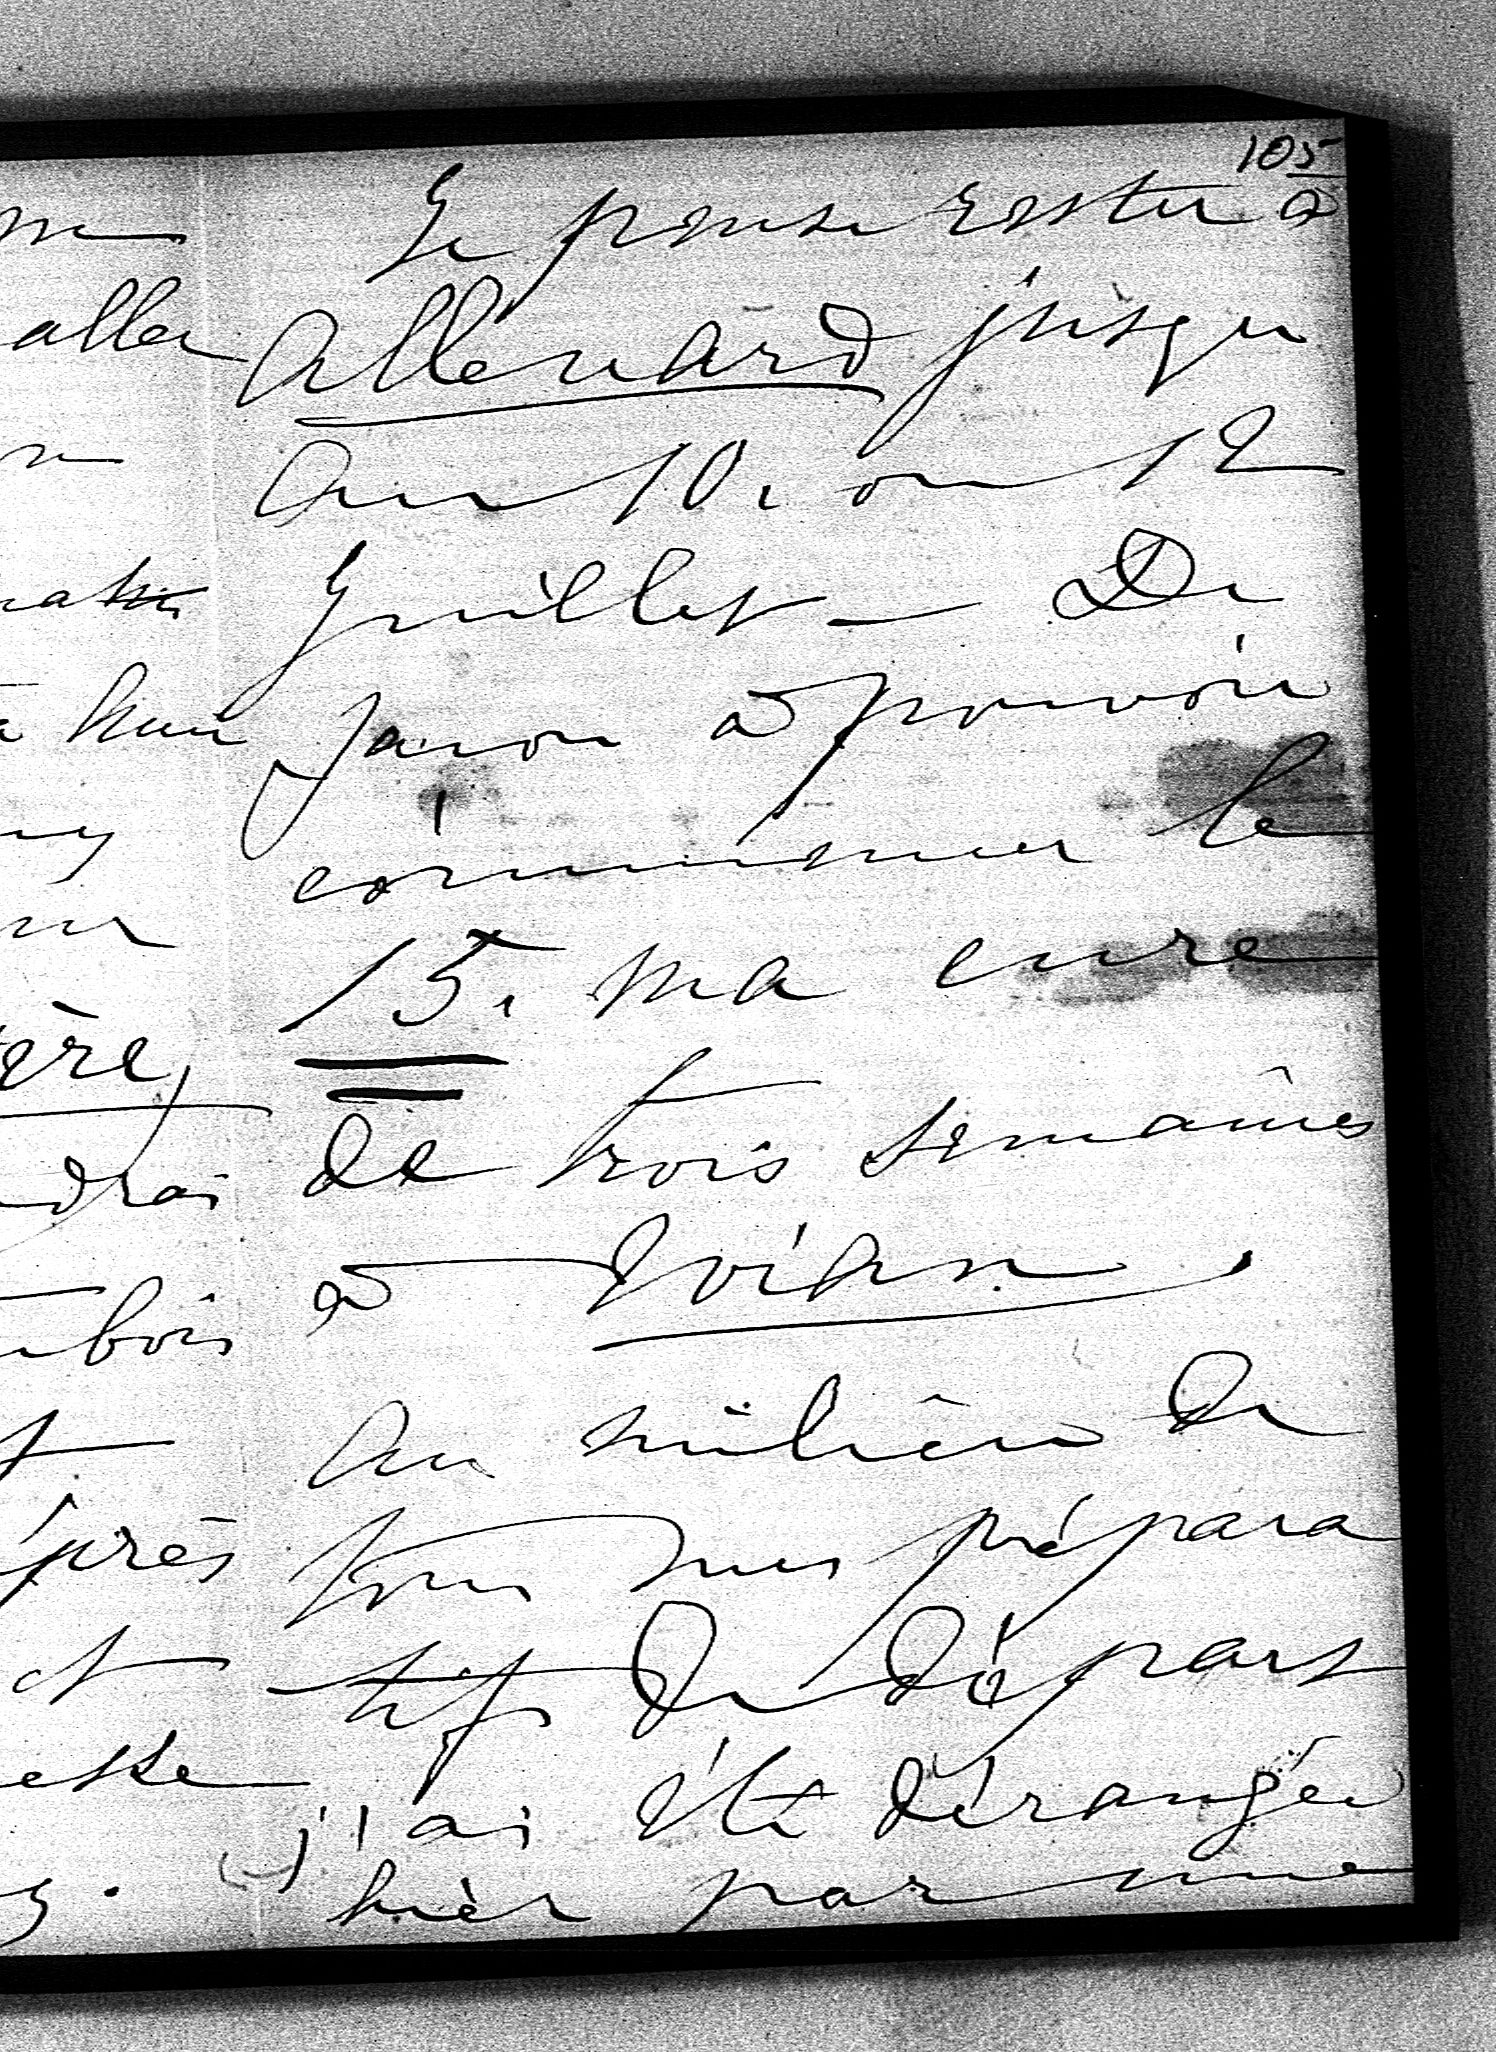 105
Je pense rester à
Allevard jusqu
au 10. ou 12
Juillet — De
façon à pouvoir
commencer le
15. ma cure
de trois semaines
à Evian,
Au milieu de
tous mes prépara
tifs de départ
j'ai été dérangée
hier par une
aller
ère,
drai
bois
près
et